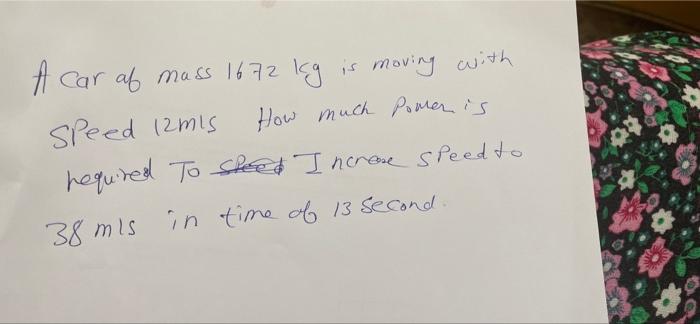 A car of mass 1672 kg is moving with
speed 12m/s How much Power is
required To speed Increase speed to
38 m/s in time of 13 second.